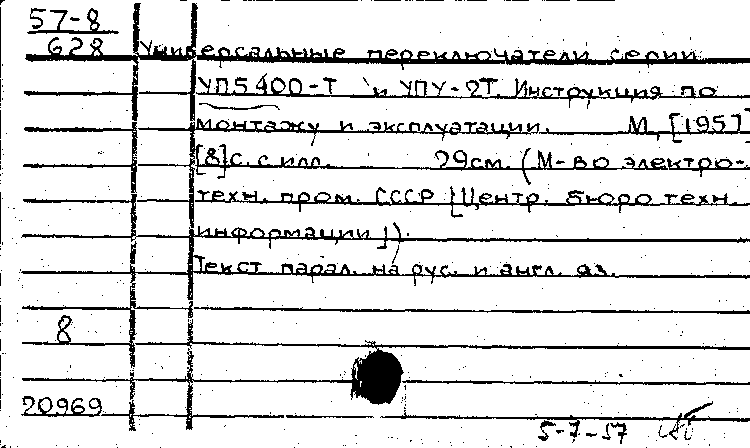 57-8
628 Универсальные переключатели серии
УП5400-Т и УПУ-2Т. Инструкция по
монтажу и эксплуатации. М., [1957]
[8]с. с илл. 29см. (М-во электро-
техн. пром. СССР [Центр. бюро техн.
информации]).
Текст парал. на рус. и англ. яз.
8
20969
5-7-57